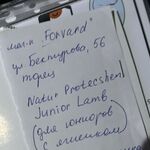 маг-н "Forvand"
ул Бектурова, 56
торец
Natur Protecshen
Junior Lamb
(для юниоров
с ягненком)